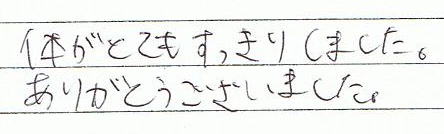 体がとてもすっきりしました。
ありがとうございました。